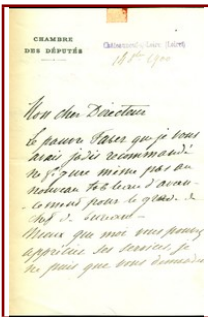 CHAMBRE
DES DÉPUTÉS
Châteauneuf s. Loire (Loiret)
1900
Mon cher Directeur
Le pauvre que je vous
avais jadis recommandé
ne figure même pas au
nouveau tableau d'avan-
cement pour le grade de
chef de bureau
Mieux que moi vous pouvez
apprécier ses services, je
ne puis que vous demander